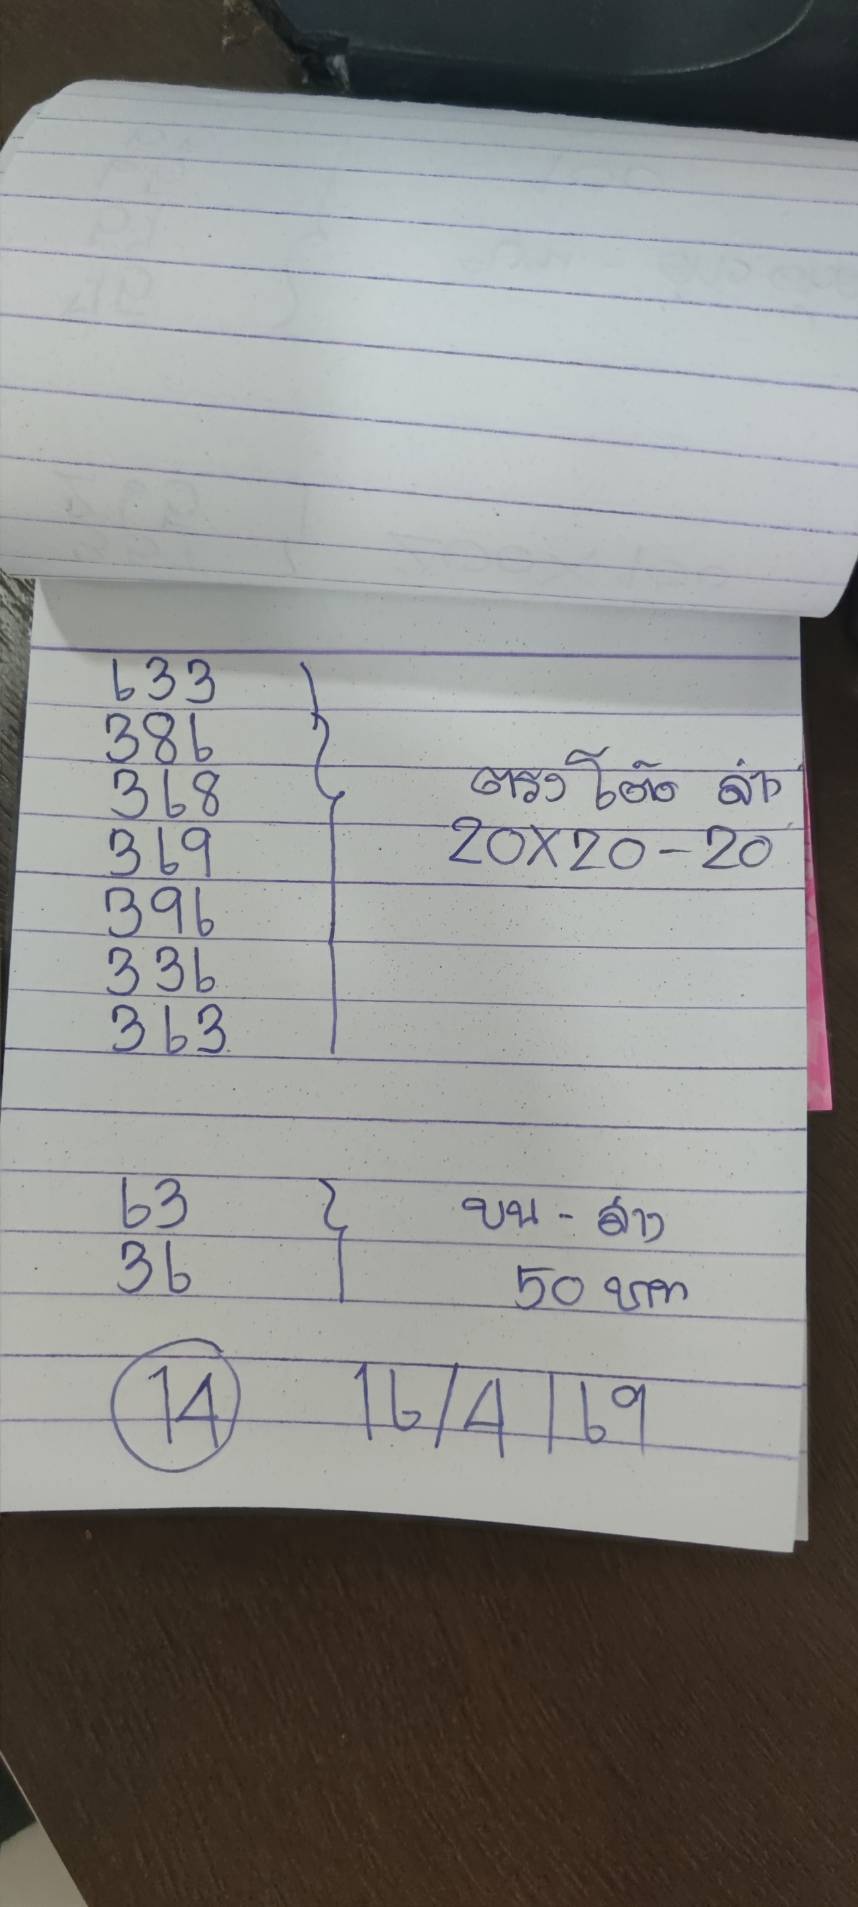 633
386
368 ตรง โต๊ด ล่าง
369 20X20-20
396
336
363
63 บน - ล่าง
36 50 บาท
14 16/4/69